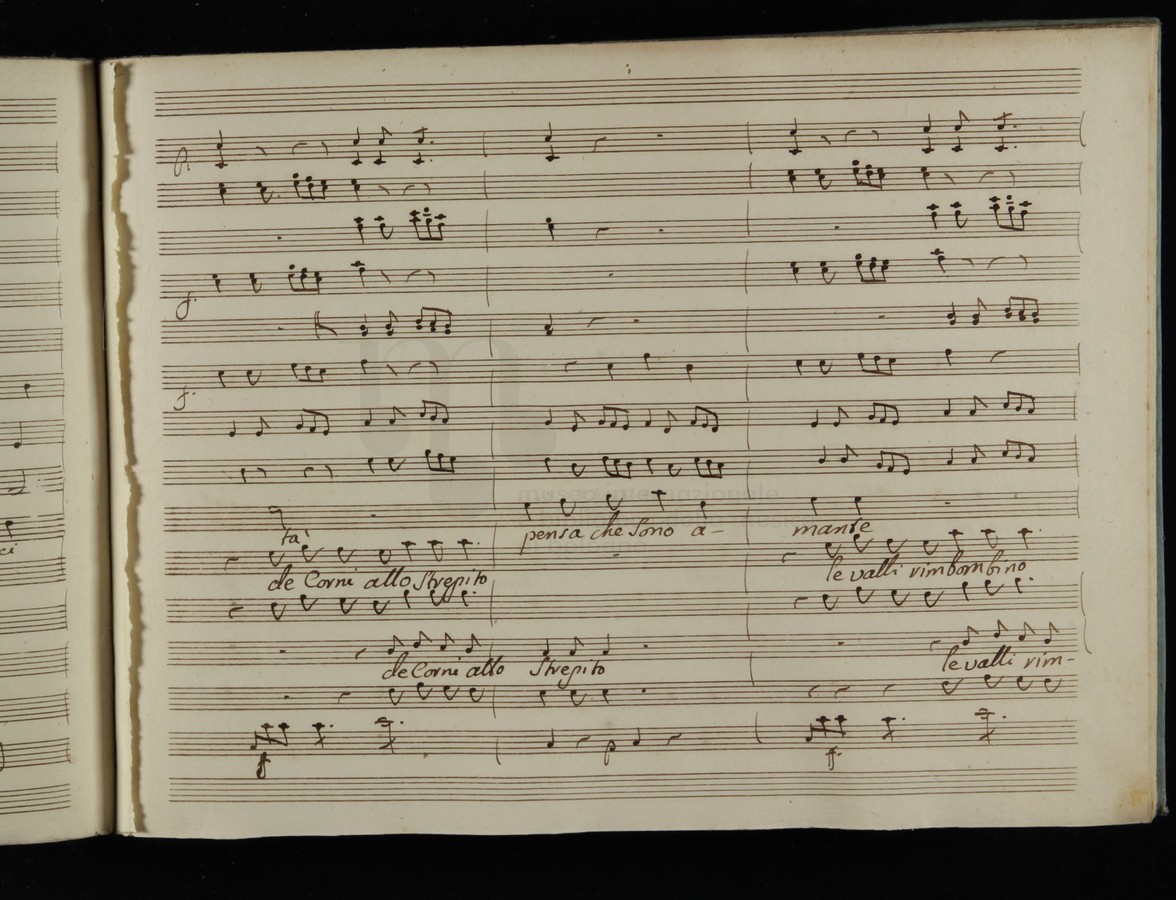 ci
f.
f.
tà
pensa che Sono a- mante
de Corni allo Strepito le valli rimbombino
de Corni allo Strepito le valli rim-
f p f.